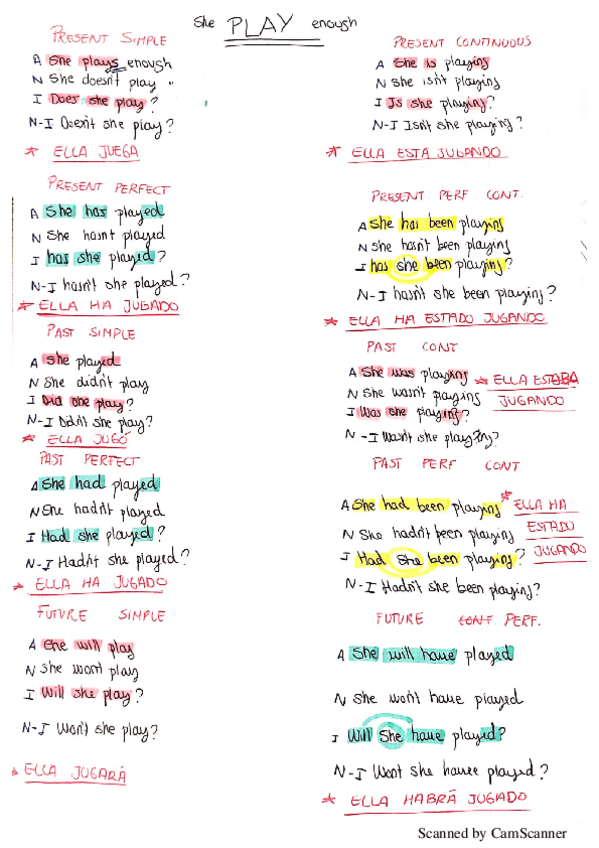 She PLAY enough
PRESENT SIMPLE
A She plays enough
N She doesn't play "
I Does she play?
N-I Doesn't she play?
* ELLA JUEGA
PRESENT PERFECT
A She has played
N She hasn't played
I has she played?
N-I hasn't she played?
* ELLA HA JUGADO
PAST SIMPLE
A She played
N She didn't play
I Did she play?
N-I Didn't she play?
* ELLA JUGÓ
PAST PERFECT
A She had played
N She hadn't played
I Had she played?
N-I Hadn't she played?
* ELLA HA JUGADO
FUTURE SIMPLE
A She will play
N She won't play
I Will she play?
N-I Won't she play?
* ELLA JUGARÁ
PRESENT CONTINUOUS
A She is playing
N She isn't playing
I Is she playing?
N-I Isn't she playing?
* ELLA ESTÁ JUGANDO
PRESENT PERF CONT.
A She has been playing
N she hasn't been playing
I has she been playing?
N-I hasn't she been playing?
* ELLA HA ESTADO JUGANDO
PAST CONT
A She was playing * ELLA ESTABA
N She wasn't playing JUGANDO
I Was she playing?
N-I Wasn't she playing?
PAST PERF CONT
A She had been playing * ELLA HA
N She hadn't been playing ESTADO
I Had she been playing? JUGANDO
N-I Hadn't she been playing?
FUTURE CONT. PERF.
A She will have played
N She won't have played
I Will she have played?
N-I Wont she have played?
* ELLA HABRÁ JUGADO
Scanned by CamScanner